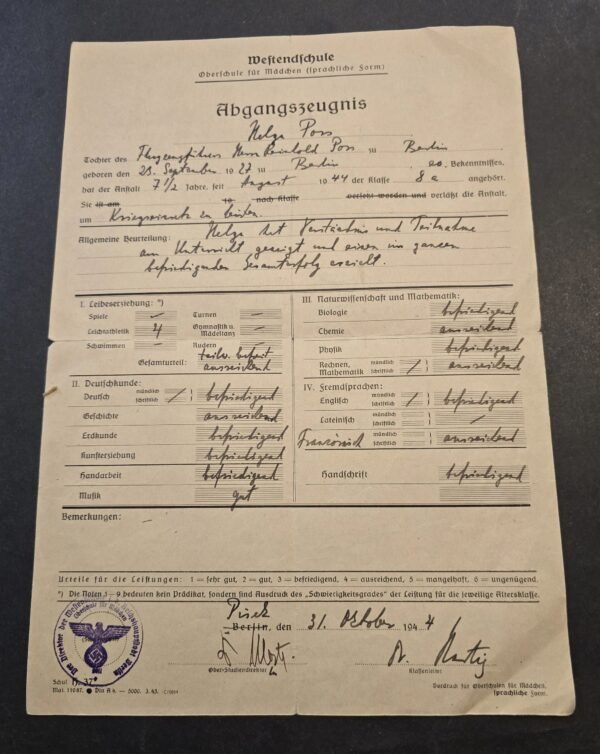 Westendschule
Oberschule für Mädchen (sprachliche Form)
Abgangszeugnis
Helga Poss
Tochter des Flugzeugführers Herrn Reinhold Poss zu Berlin
geboren den 23. September 1927 zu Berlin, ev. Bekenntnisses,
hat der Anstalt 7 1/2 Jahre, seit August 1944 der Klasse 8a angehört.
Sie ist am 19 nach Klasse versetzt worden und verläßt die Anstalt,
um Kriegseinsatz zu leisten.
Allgemeine Beurteilung: Helga hat Verständnis und Teilnahme
am Unterricht gezeigt und einen im ganzen
befriedigenden Gesamterfolg erzielt.
I. Leibeserziehung: *)
Spiele — Turnen —
Leichtathletik 4 Gymnastik u. Mädeltanz —
Schwimmen — Rudern —
Gesamturteil: teilw. befreit
ausreichend
II. Deutschkunde:
Deutsch mündlich schriftlich befriedigend
Geschichte ausreichend
Erdkunde befriedigend
Kunsterziehung befriedigend
Handarbeit befriedigend
Musik gut
III. Naturwissenschaft und Mathematik:
Biologie befriedigend
Chemie ausreichend
Physik befriedigend
Rechnen, Mathematik mündlich schriftlich befriedigend
IV. Fremdsprachen:
Englisch mündlich schriftlich befriedigend
Lateinisch mündlich schriftlich —
Französisch mündlich schriftlich ausreichend
Handschrift befriedigend
Bemerkungen: —
Urteile für die Leistungen: 1 = sehr gut, 2 = gut, 3 = befriedigend, 4 = ausreichend, 5 = mangelhaft, 6 = ungenügend.
*) Die Noten 1–9 bedeuten kein Prädikat, sondern sind Ausdruck des „Schwierigkeitsgrades" der Leistung für die jeweilige Altersklasse.
Pisek
Berlin, den 31. Oktober 1944
Ober-Studiendirektor Klassenleiter
Der Direktor der Westendschule Reichshauptstadt Berlin
Oberschule für Mädchen
Schul. 37*
Mat. 11087. ● Din A 4. — 5000. 3. 43.
Vordruck für Oberschulen für Mädchen,
sprachliche Form.